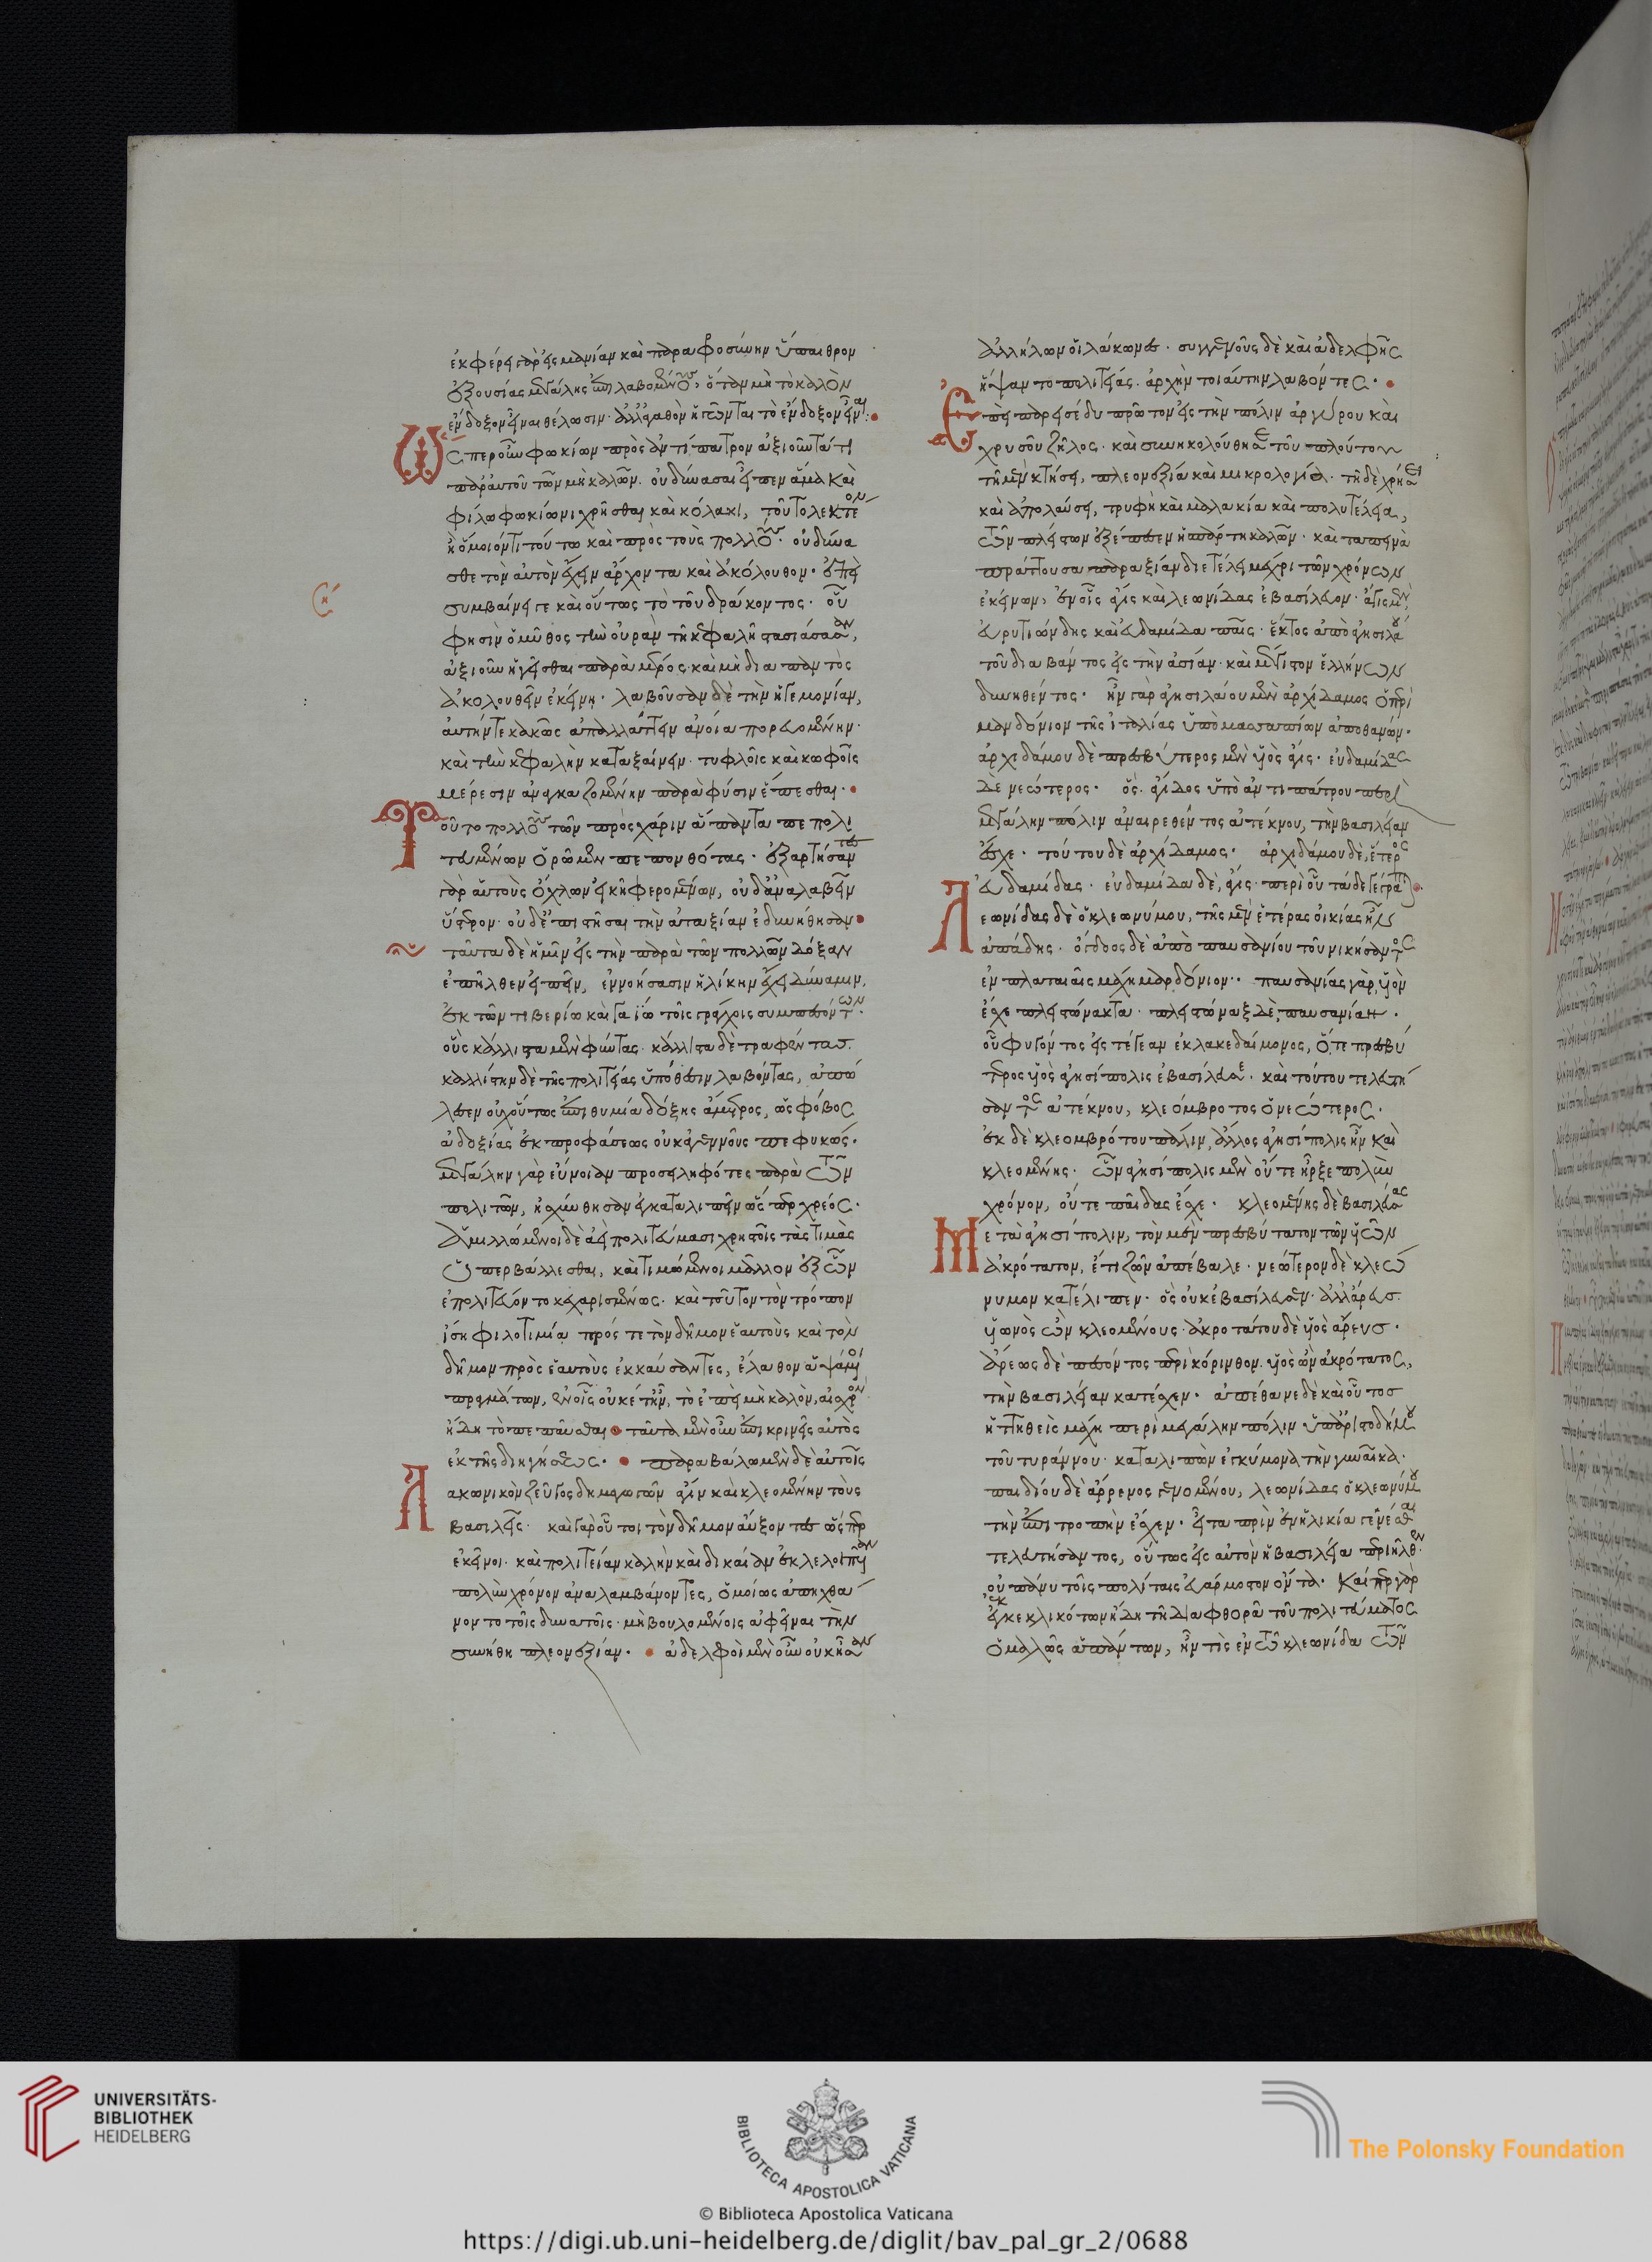 ἐκφέρει γὰρ εἰς μανίαν καὶ παραφροσύνην ὕπαιθρον
ἐξουσίας μεγάλης ἐπιλαβομένους, ὅταν μὴ τὸ καλὸν
ἔνδοξον εἶναι θέλωσιν· ἀλλ' ἀγαθὸν ἡγῶνται τὸ ἔνδοξον εἶναι·
ὥσπερ οὖν φωκίων πρὸς ἀντίπατρον ἀξιοῦντά τι
παρ' αὐτοῦ τῶν μὴ καλῶν. οὐ δύνασαι εἶπεν ἅμα καὶ
φίλῳ φωκίωνι χρῆσθαι καὶ κόλακι, τοῦτο λεκτέον
ἢ ὅμοιόν τι τούτω καὶ πρὸς τοὺς πολλούς· οὐ δύνα
σθε τὸν αὐτὸν ἔχειν ἄρχοντα καὶ ἀκόλουθον· ἐπεὶ
συμβαίνει γε καὶ οὕτως τὸ τοῦ δράκοντος· οὗ
φησὶν ὁ μῦθος τὴν οὐρὰν τῆ κεφαλῆ στασιάσασαν,
ἀξιοῦν ἡγεῖσθαι παρὰ μέρος· καὶ μὴ διαπαντὸς
ἀκολουθεῖν ἐκείνη· λαβοῦσαν δὲ τὴν ἡγεμονίαν,
αὐτήν τε κακῶς ἀπαλλάττειν ἀνοία πορευομένην·
καὶ τὴν κεφαλὴν καταξαίνειν· τυφλοῖς καὶ κωφοῖς
μέρεσιν ἀναγκαζομένην παρὰ φύσιν ἕπεσθαι·
τοῦτο πολλοὺς τῶν πρὸς χάριν ἅπαντα πεπολι
τευμένων ὁρῶμεν πεπονθότας· ἐξαρτήσαντες
γὰρ αὑτοὺς ὄχλων εἰκῆ φερομένων, οὐδ' ἀναλαβεῖν
ὕστερον· οὐδ' ἐπιστῆσαι τὴν ἀταξίαν ἐδυνήθησαν
ταῦτα δὲ ἡμῖν εἰς τὴν παρὰ τῶν πολλῶν δόξαν
ἐπῆλθεν εἰπεῖν, ἐννοήσασιν ἡλίκην ἔχει δύναμιν,
ἐκ τῶν τιβερίω καὶ γαΐω τοῖς γράγχοις συμπεσόντων·
οὓς κάλλιστα μὲν φύντας· κάλλιστα δὲ τραφέντας·
καλλίστην δὲ τῆς πολιτείας ὑπόθεσιν λαβόντας, ἀπώ
λεσεν οὐχ οὕτως ἐπιθυμία δόξης ἄμετρος, ὡς φόβος
ἀδοξίας ἐκ προφάσεως οὐκ ἀγεννοῦς πεφυκώς·
μεγάλην γὰρ εὔνοιαν προσειληφότες παρὰ τῶν
πολιτῶν, ἠσχύνθησαν ἐγκαταλιπεῖν ὥσπερ χρέος·
ἁμιλλώμενοι δὲ ἀεὶ πολιτεύμασι χρηστοῖς τὰς τιμὰς
ὑπερβάλλεσθαι, καὶ τιμώμενοι μᾶλλον ἐξ ὧν
ἐπολιτεύοντο κεχαρισμένως· καὶ τοῦτον τὸν τρόπον
ἴση φιλοτιμία πρός τε τὸν δῆμον ἑαυτοὺς καὶ τὸν
δῆμον πρὸς ἑαυτοὺς ἐκκαύσαντες, ἔλαθον ἁψάμενοι
πραγμάτων, ἐν οἷς οὐκέτ' ἦν, τὸ ἐπεὶ μὴ καλὸν, αἰσχρὸν
ἤδη τὸ πεπαῦσθαι ταῦτα μὲν οὖν ἐπικρινεῖς αὐτὸς
ἐκ τῆς διηγήσεως· παραβάλωμεν δὲ αὐτοῖς
λακωνικὸν ζεῦγος δημαγωγῶν ἆγιν καὶ κλεομένην τοὺς
βασιλεῖς· καὶ γὰρ οὗτοι τὸν δῆμον αὔξοντες ὥσπερ
ἐκεῖνοι· καὶ πολιτείαν καλὴν καὶ δικαίαν ἐκλελοιπυῖαν
πολὺν χρόνον ἀναλαμβάνοντες, ὁμοίως ἀπηχθά
νοντο τοῖς δυνατοῖς· μὴ βουλομένοις ἀφεῖναι τὴν
συνήθη πλεονεξίαν· ἀδελφοὶ μὲν οὖν οὐκ ἦσαν
ἀλλήλων οἱ λάκωνες· συγγενοῦς δὲ καὶ ἀδελφῆς
ἥψαντο πολιτείας· ἀρχὴν τοιαύτην λαβόντες·
ἐπεὶ παρεισέδυ πρῶτον εἰς τὴν πόλιν ἀργύρου καὶ
χρυσοῦ ζῆλος· καὶ συνηκολούθησε τοῦ πλούτου
τῆ μὲν κτήσει, πλεονεξία καὶ μικρολογία· τῆ δὲ χρήσει
καὶ ἀπολαύσει, τρυφὴ καὶ μαλακία καὶ πολυτέλεια,
τῶν πλείστων ἐξέπεσεν ἡ σπάρτη καλῶν· καὶ ταπεινὰ
πράττουσα παρ' ἀξίαν διετέλει μέχρι τῶν χρόνων
ἐκείνων, ἐν οἷς ἆγις καὶ λεωνίδας ἐβασίλευον· ἆγις μὲν
εὐρυτιώνδης καὶ εὐδαμίδα παῖς· ἕκτος ἀπὸ ἀγησιλάου
τοῦ διαβάντος εἰς τὴν ἀσίαν· καὶ μέγιστον ἑλλήνων
δυνηθέντος· ἦν γὰρ ἀγησιλάου μὲν ἀρχίδαμος ὁ περὶ
μανδόνιον τῆς ἰταλίας ὑπὸ μεσσαπίων ἀποθανών·
ἀρχιδάμου δὲ πρεσβύτερος μὲν υἱὸς ἆγις· εὐδαμίδας
δὲ νεώτερος· ὅς· ἄγιδος ὑπὸ ἀντιπάτρου περὶ
μεγάλην πόλιν ἀναιρεθέντος ἀτέκνου, τὴν βασιλείαν
ἔσχε· τούτου δὲ ἀρχίδαμος· ἀρχιδάμου δὲ, ἕτερος
εὐδαμίδας· εὐδαμίδα δὲ, ἆγις· περὶ οὗ τάδε γέγραπται·
λεωνίδας δὲ ὁ κλεωνύμου, τῆς μὲν ἑτέρας οἰκίας ἦν
ἀγιάδης· ὄγδοος δὲ ἀπὸ παυσανίου τοῦ νικήσαντος
ἐν πλαταιαῖς μάχη μαρδόνιον· παυσανίας γὰρ, υἱὸν
ἔσχε πλειστώνακτα· πλειστώναξ δὲ, παυσανίαν·
οὗ φυγόντος εἰς τέγεαν ἐκ λακεδαίμονος, ὅ τε πρεσβύ
τερος υἱὸς ἀγησίπολις ἐβασίλευσε· καὶ τούτου τελευτή
σαντος ἀτέκνου, κλεόμβροτος ὁ νεώτερος·
ἐκ δὲ κλεομβρότου πάλιν, ἄλλος ἀγησίπολις ἦν καὶ
κλεομένης· ὧν ἀγησίπολις μὲν οὔτε ἦρξε πολὺν
χρόνον, οὔτε παῖδας ἔσχε· κλεομένης δὲ βασιλεύσας
μετὰ ἀγησίπολιν, τὸν μὲν πρεσβύτατον τῶν υἱῶν
ἀκρότατον, ἔτι ζῶν ἀπέβαλε· νεώτερον δὲ κλεώ
νυμον κατέλιπεν· ὃς οὐκ ἐβασίλευσεν· ἀλλ' ἀρεὺς
υἱωνὸς ὢν κλεομένους· ἀκροτάτου δὲ υἱὸς ἀρεὺς·
ἀρέως δὲ πεσόντος περὶ κόρινθον· υἱὸς ὢν ἀκρότατος,
τὴν βασιλείαν κατέσχεν· ἀπέθανε δὲ καὶ οὗτος
ἡττηθεὶς μάχη περὶ μεγάλην πόλιν ὑπὸ ἀριστοδήμου
τοῦ τυράννου· καταλιπὼν ἐγκύμονα τὴν γυναῖκα·
παιδίου δὲ ἄρρενος γενομένου, λεωνίδας ὁ κλεωνύμου
τὴν ἐπιτροπὴν ἔσχεν· εἶτα πρὶν ἐν ἡλικία γενέσθαι
τελευτήσαντος, οὕτως εἰς αὐτὸν ἡ βασιλεία περιῆλθεν·
οὐ πάνυ τοῖς πολίταις εὐάρμοστον ὄντα· καίπερ γὰρ
ἐγκεκλικότων ἤδη τῆ διαφθορᾶ τοῦ πολιτεύματος
ὁμαλῶς ἁπάντων, ἦν τις ἐν τῶ λεωνίδα τῶν
UNIVERSITÄTS-
BIBLIOTHEK
HEIDELBERG
BIBLIOTECA APOSTOLICA VATICANA
The Polonsky Foundation
© Biblioteca Apostolica Vaticana
https://digi.ub.uni-heidelberg.de/diglit/bav_pal_gr_2/0688